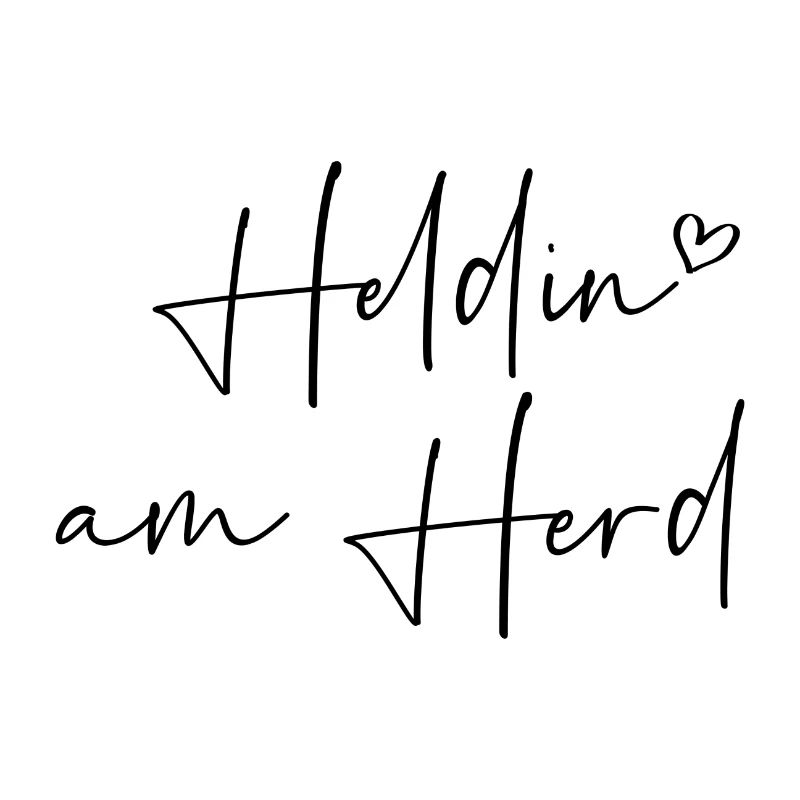 Heldin
am Herd